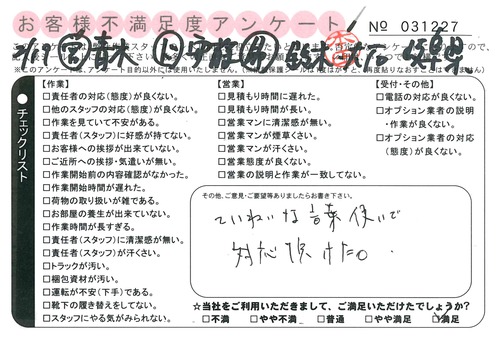 お客様不満足度アンケート
№ 031227
チェックリスト
【作業】
□責任者の対応(態度)が良くない。
□他のスタッフの対応(態度)が良くない。
□作業を見ていて不安がある。
□責任者(スタッフ)に好感が持てない。
□お客様への挨拶が出来ていない。
□ご近所への挨拶・気遣いが無い。
□作業開始前の内容確認がなかった。
□作業開始時間が遅れた。
□荷物の取り扱いが雑である。
□お部屋の養生が出来ていない。
□作業時間が長すぎる。
□責任者(スタッフ)に清潔感が無い。
□責任者(スタッフ)が汗くさい。
□トラックが汚い。
□梱包資材が汚い。
□運転が不安(下手)である。
□靴下の履き替えをしてない。
□スタッフにやる気がみられない。
【営業】
□見積もり時間に遅れた。
□見積もり時間が長い。
□営業マンに清潔感が無い。
□営業マンが煙草くさい。
□営業マンが汗くさい。
□営業態度が良くない。
□営業の説明と作業が一致してない。
【受付・その他】
□電話の対応が良くない。
□オプション業者の説明
・作業が良くない。
□オプション業者の対応
(態度)が良くない。
その他、ご意見・ご要望等ありましたらお書き下さい。
ていねいな言葉使いで
対応頂けた。
☆当社をご利用いただきまして、ご満足いただけたでしょうか?
□不満 □やや不満 □普通 □やや満足 □満足